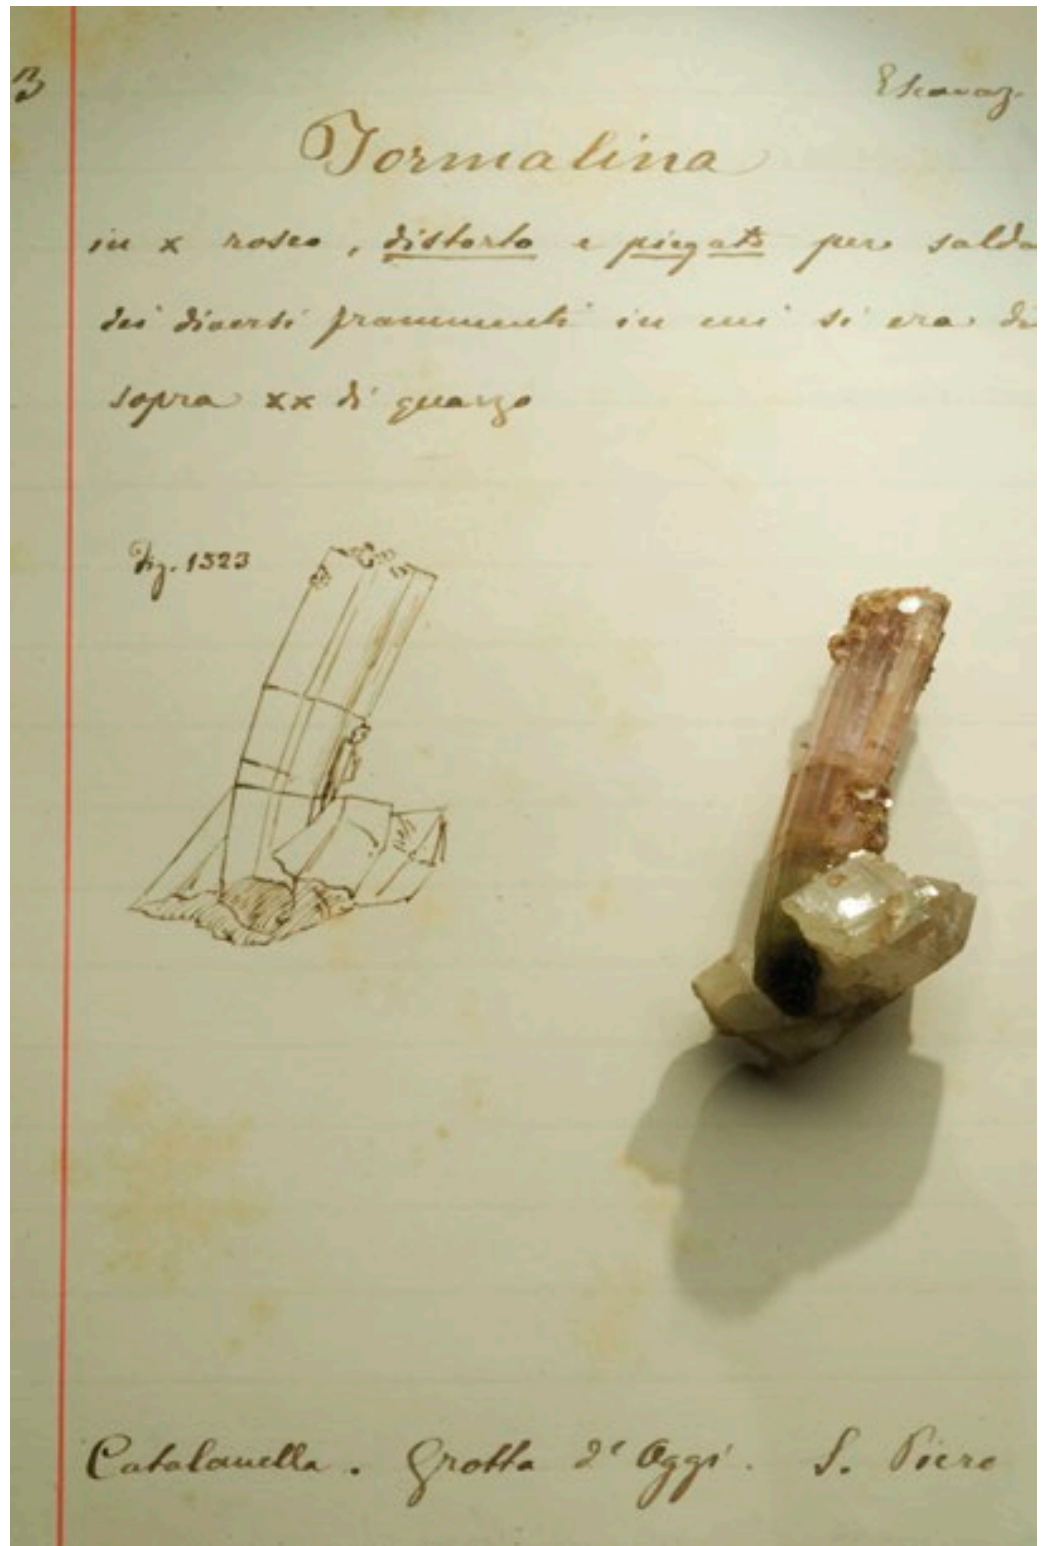 3
Escavaz.
Tormalina
in x roseo, distorto e piegato per salda
dei diversi frammenti in cui si era di
sopra xx di quarzo
Fig. 1323
Catalanella. Grotta d'Oggi. S. Piero